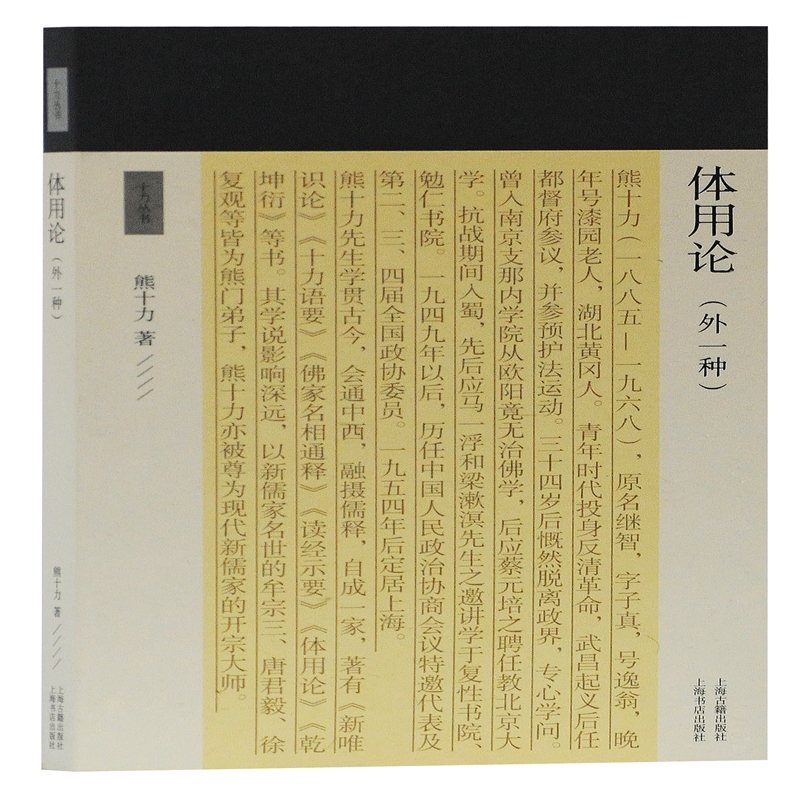 体用论（外一种）
上海古籍出版社
上海书店出版社
熊十力（一八八五—一九六八），原名继智，字子真，号逸翁，晚
年号漆园老人，湖北黄冈人。青年时代投身反清革命，武昌起义后任
都督府参议，并参预护法运动。三十四岁后慨然脱离政界，专心学问。
曾入南京支那内学院从欧阳竟无治佛学，后应蔡元培之聘任教北京大
学。抗战期间入蜀，先后应马一浮和梁漱溟先生之邀讲学于复性书院、
勉仁书院。一九四九年以后，历任中国人民政治协商会议特邀代表及
第二、三、四届全国政协委员。一九五四年后定居上海。
熊十力先生学贯古今，会通中西，融摄儒释，自成一家，著有《新唯
识论》《十力语要》《佛家名相通释》《读经示要》《体用论》《乾
坤衍》等书。其学说影响深远，以新儒家名世的牟宗三、唐君毅、徐
复观等皆为熊门弟子，熊十力亦被尊为现代新儒家的开宗大师。
十力丛书
熊十力 著////
十力丛书
体用论（外一种）
熊十力 著////
上海古籍出版社
上海书店出版社